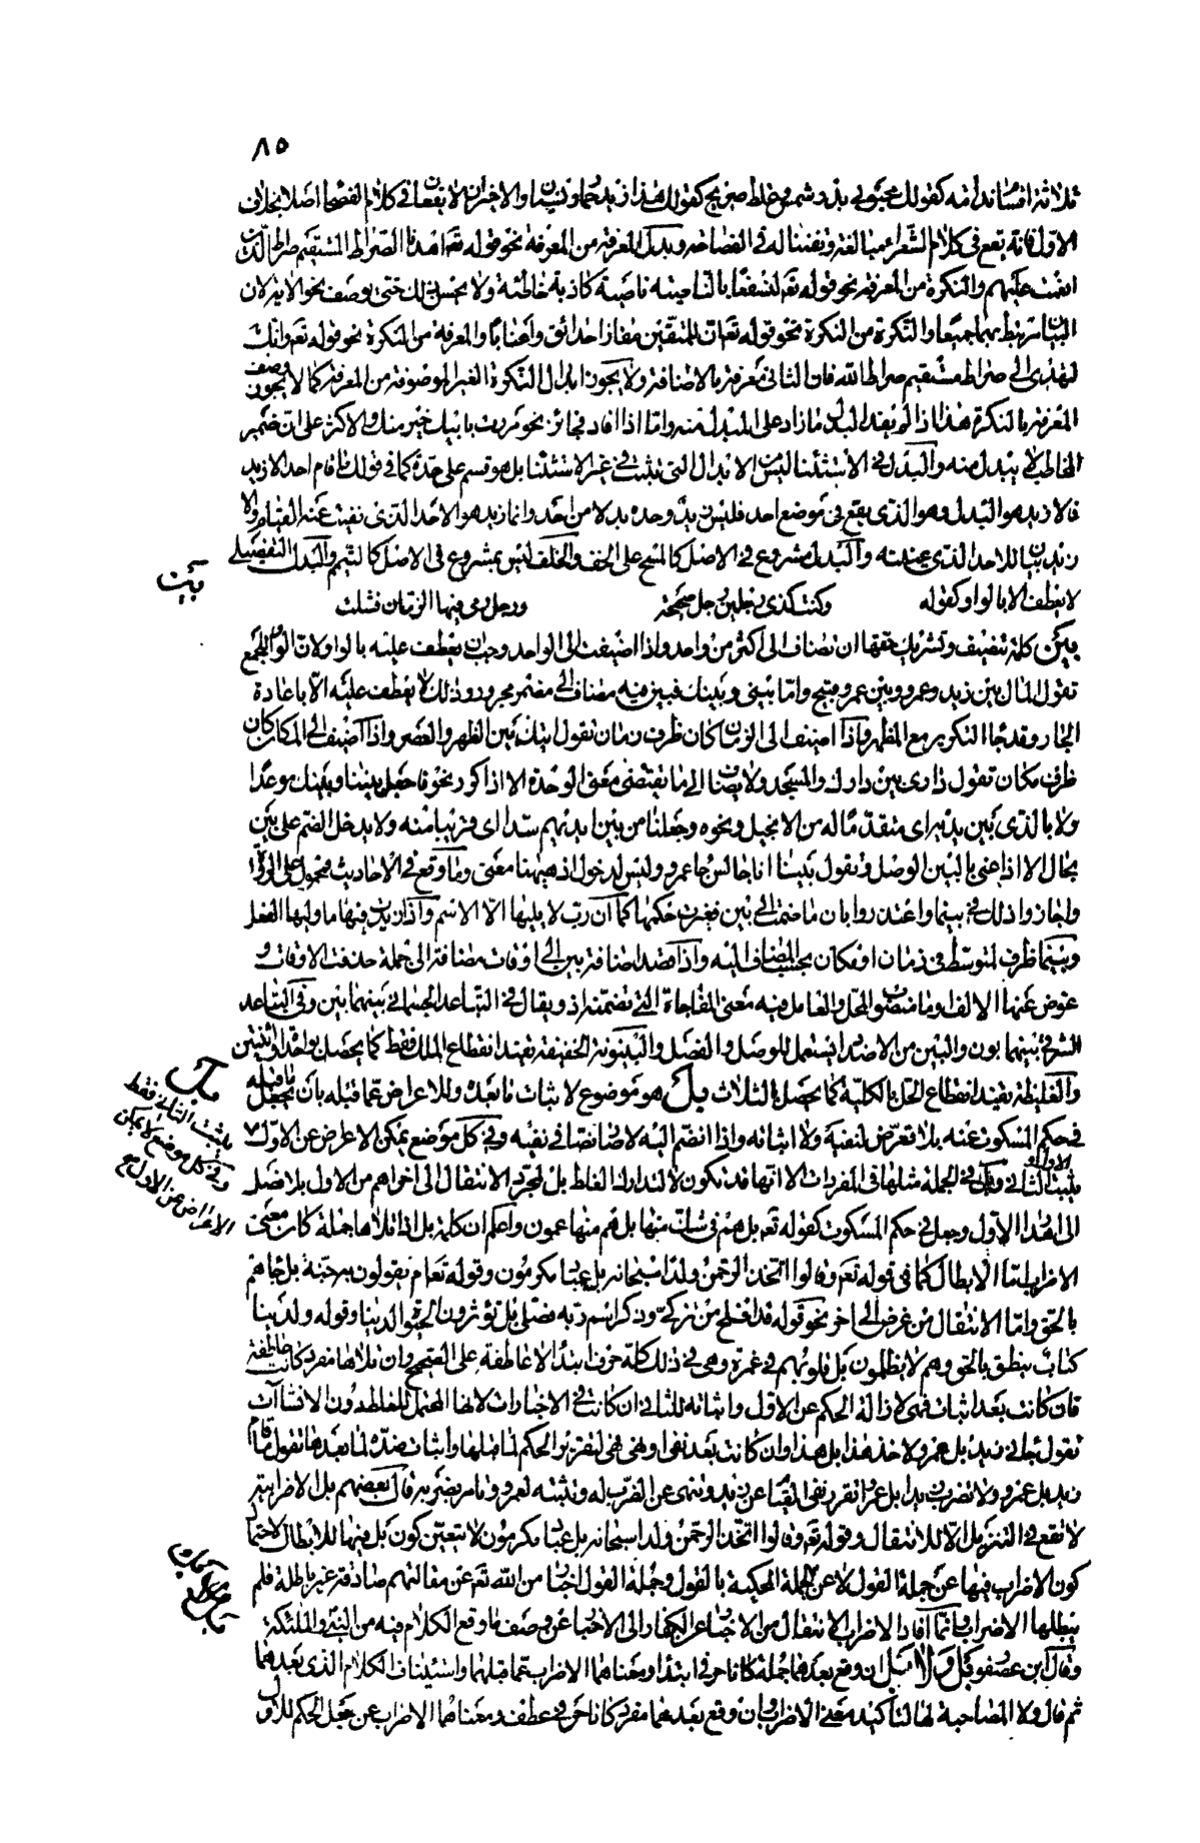 ٨٥
ثلاثة اقسام ندامة كقولك محبوبي بدر شمس وغلط صريح كقولك هذا زيد حمار ونسيان والاخيران لا يقعان في كلام الفصحا اصلا بخلاف
الاول فانه يقع في كلام الشعراء مبالغة وتفننا له في الفصاحة وبدل المعرفة من المعرفة نحو قوله تعه اهدنا الصراط المستقيم صراط الذين
انعمت عليهم والنكرة من المعرفة نحو قوله تعه لنسفعا بالناصية ناصية كاذبة خاطئة ولا يحسن ذلك حتى يوصف نحو الاية لان
البيان مرتبط بهما جميعا والنكرة من النكرة نحو قوله تعه ان للمتقين مفازا حدائق واعنابا والمعرفة من النكرة نحو قوله تعه وانك
لتهدي الى صراط مستقيم صراط الله فان الثاني معرفة بالاضافة ولا يجوز ابدال النكرة الغير الموصوفة من المعرفة كما لا يجوز وصف
المعرفة بالنكرة هذا اذا لم يفد البدل ما زاد على المبدل منه واما اذا افاد فجائز نحو مررت بابيك خير منك والاكثر على ان ضمير
المخاطب لا يبدل منه والبدل في الاستثنا ليس من الابدال التي تثبت في غير الاستثنا بل هو قسم على حدة كما في قولك ما قام احد الا زيد
فالا زيد هو البدل وهو الذي يقع في موضع احد فليس زيد وحده بدلا من احد وانما زيد هو الاحد الذي نفيت عنه القيام والا
زيد بيان للاحد الذي عنيته والبدل مشروع في الاصل كالمسح على الخف والخلف ليس بمشروع في الاصل كالتيمم والبدل التفصيلي
لا يعطف الا بالواو كقوله وكنت كذي رجلين رجل صحيحة ورجل رمى فيها الزمان فشلت
بين
بين كلمة تنصيف وتشريك حقها ان تضاف الى اكثر من واحد واذا اضيفت الى الواحد وجب ان يعطف عليه بالواو لان الواو للجمع
تقول المال بين زيد وعمرو وبين عمرو قبيح واما بيني وبينك فبين فيه مضاف الى مضمر مجرور وذلك لا يعطف عليه الا باعادة
الجار وقد جاء التكرير مع المظهر واذا اضيف الى الزمان كان ظرف زمان تقول اتيتك بين الظهر والعصر واذا اضيف الى المكان كان
ظرف مكان تقول داري بين دارك والمسجد ولا يضاف الى ما يقتضي معنى الوحدة الا اذا كرر نحو فاجعل بيننا وبينك موعدا
ولا بالذي بين يديه اي متقدما له من الانجيل ونحوه وجعلنا من بين ايديهم سدا اي قريبا منه ولا يدخل الضم على بين
بحال الا اذا عنى بالبين الوصل وتقول بينا انا جالس جا عمرو وليس لدخول اذ ههنا معنى وما وقع في الاحاديث محمول على
واجازوا ذلك في بينما واعتذروا بان ما ضمت الى بين فغيرت حكمها كما ان رب لا يليها الا الاسم واذا زيدت فيها ما وليها الفعل
وبينما ظرف لمتوسط في زمان او مكان بحسب المضاف اليه واذا قصد اضافة بين الى اوقات مضافة الى جملة حذفت الاوقات و
عوض عنها الالف وما منصوب المحل والعامل فيه معنى المفاجاة التي تضمنه اذ ويقال في التباعد الجسماني بينهما بين وفي التباعد
الشرفي بينهما بون والبين من الاضداد يستعمل للوصل والفصل والبينونة الخفيفة تفيد انقطاع الملك فقط كما يحصل بواحد او اثنين
بل
والغليظة تفيد انقطاع الحل بالكلية كما يحصل بالثلاث بل هو موضوع لاثبات ما بعده وللاعراض عما قبله بان يجعل ما قبله
في حكم المسكوت عنه بلا تعرض لنفيه ولا اثباته واذا انضم اليه لا صار نصا في نفيه وفي كل موضع يمكن الاعراض عن الاول
يثبت الثاني فقط وفي كل موضع لا يمكن الاعراض عن الاول مع
يثبت الثاني وبل في الجملة مثلها في المفردات الا انها قد تكون لا لتدارك الغلط بل لمجرد الانتقال الى اخر اهم من الاول بلا قصد
الى اهدار الاول وجعله في حكم المسكوت كقوله تعه بل هم في شك منها بل هم منها عمون واعلم ان كلمة بل اذا تلاها جملة كان معنى
الاضراب اما الابطال كما في قوله تعه وقالوا اتخذ الرحمن ولدا سبحانه بل عباد مكرمون وقوله تعه ام يقولون به جنة بل جاهم
بالحق واما الانتقال من غرض الى اخر نحو قوله قد افلح من تزكى وذكر اسم ربه فصلى بل تؤثرون الحيوة الدنيا وقوله ولدينا
كتاب ينطق بالحق وهم لا يظلمون بل قلوبهم في غمرة وهي في ذلك كلمة حرف ابتدأ لا عاطفة على الصحيح وان تلاها مفرد كانت عاطفة
فان كانت بعد اثبات فهي لازالة الحكم عن الاول واثباته للثاني ان كانت في الاخبارات لانها المحتمل للغلط دون الانشاآت
تقول جاني زيد بل عمرو لا خذ هذا بل هذا وان كانت بعد نفي او نهي فهي لتقرير الحكم لما قبلها واثبات ضده لما بعدها تقول ما قام
زيد بل عمرو ولا تضرب زيدا بل عمرا تقرر نفي القيام عن زيد وتنهى عن الضرب له وتثبته لعمرو وتامر بضربه قال بعضهم بل الاضرابية
لا تقع في التنزيل الا للانتقال وقوله تعه وقالوا اتخذ الرحمن ولدا سبحانه بل عباد مكرمون لا يتعين كون بل فيها للابطال لاحتمال
كون الاضراب فيها عن جملة القول لا عن الجملة المحكية بالقول وجملة القول اخبار من الله تعه عن مقالتهم صادقة غير باطلة فلم
يبطلها الاضراب وانما افاد الاضراب الانتقال من الاخبار عن الكفار الى الاخبار عن وصف ما وقع الكلام فيه من النبي والملئكة
وقال ابن عصفور بل ولا بل ان وقع بعدهما جملة كانا حرفي ابتدأ ومعناهما الاضراب عما قبلهما واستيناف الكلام الذي بعدهما
ثم قال ولا المصاحبة لها لتاكيد معنى الاضراب وان وقع بعدهما مفرد كانا حرفي عطف ومعناهما الاضراب عن جعل الحكم للاول